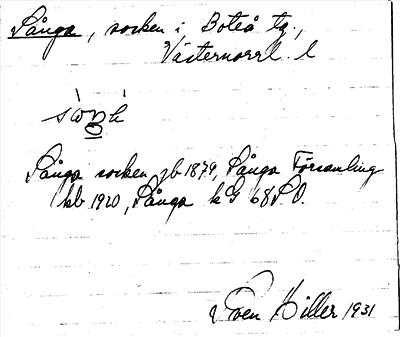 Sånga, socken i Boteå tg.,
Västernorrl. l
Sånga socken jb 1879, Sånga Församling
kb 1920, Sånga kG 68 S O.
Sven Hiller 1931